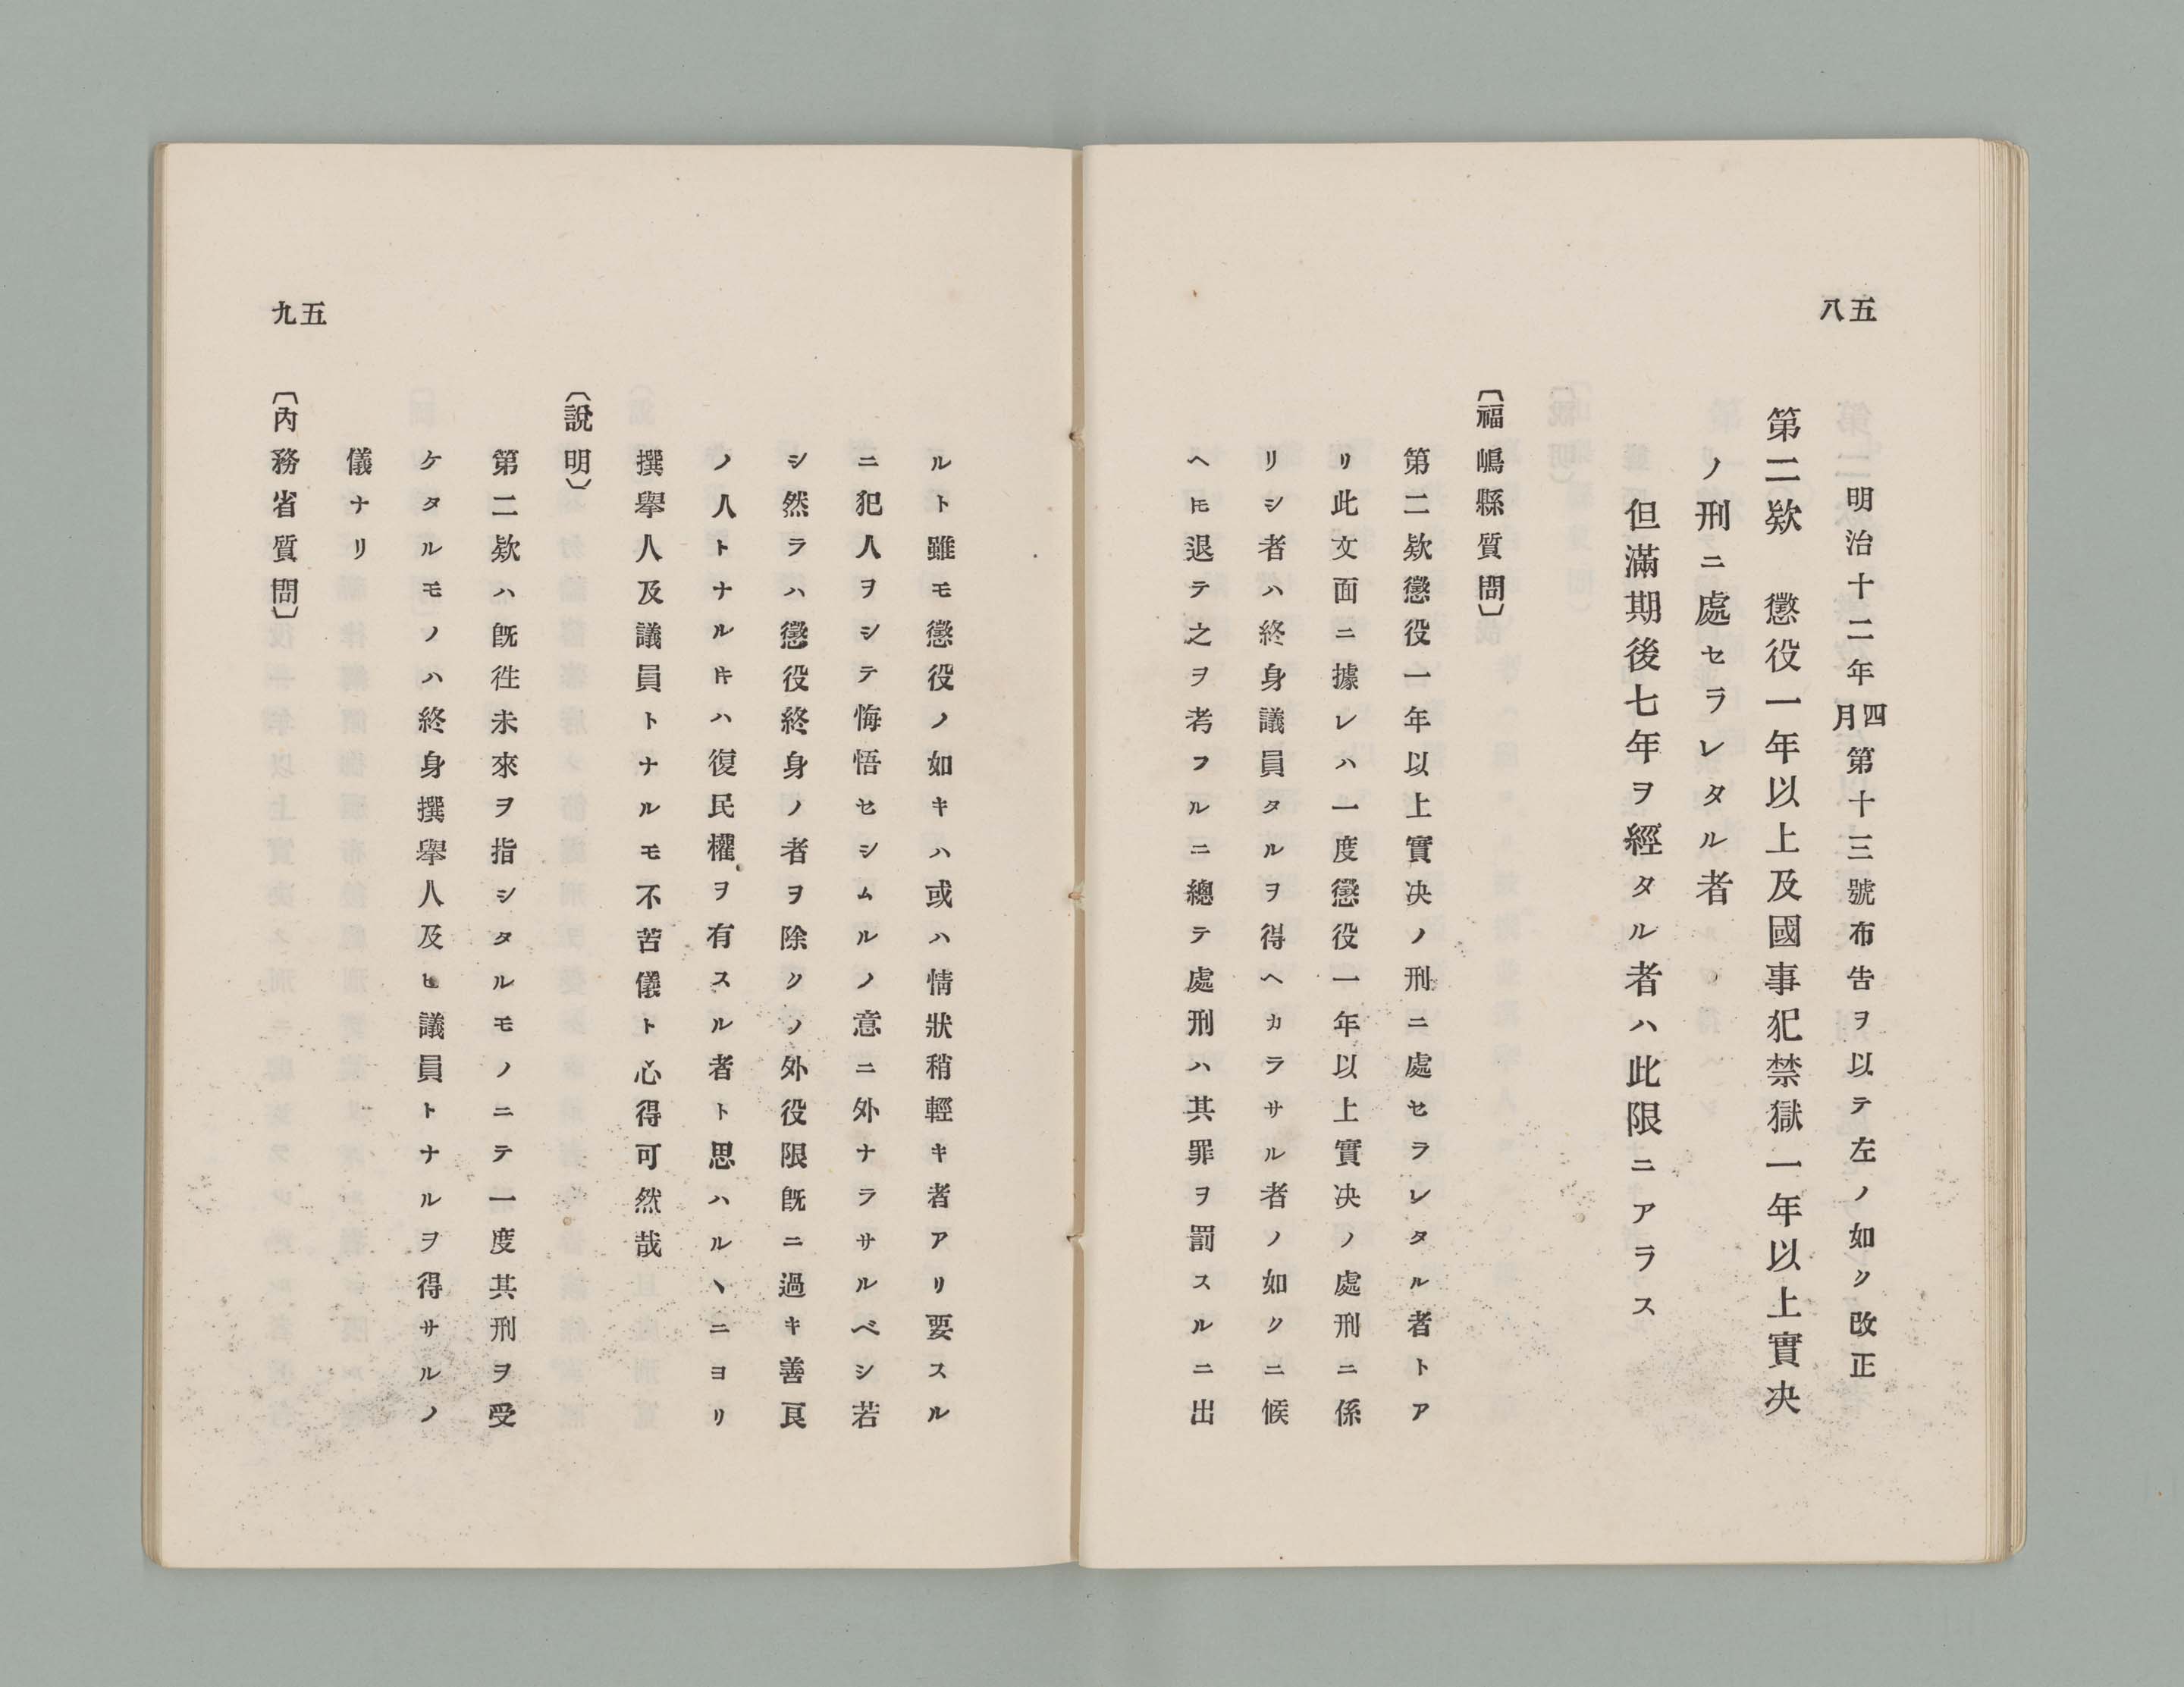 五八
明治十二年四月第十三號布告ヲ以テ左ノ如ク改正
第二欵　懲役一年以上及國事犯禁獄一年以上實决
ノ刑ニ處セラレタル者
但滿期後七年ヲ經タル者ハ此限ニアラス
〔福嶋縣質問〕
第二欵懲役一年以上實决ノ刑ニ處セラレタル者トア
リ此文面ニ據レハ一度懲役一年以上實决ノ處刑ニ係
リシ者ハ終身議員タルヲ得ヘカラサル者ノ如クニ候
ヘ𪜈退テ之ヲ考フルニ總テ處刑ハ其罪ヲ罰スルニ出
ルト雖モ懲役ノ如キハ或ハ情狀稍輕キ者アリ要スル
ニ犯人ヲシテ悔悟セシムルノ意ニ外ナラサルベシ若
シ然ラハ懲役終身ノ者ヲ除クノ外役限既ニ過キ善良
ノ人トナルキハ復民權ヲ有スル者ト思ハルヽニヨリ
撰擧人及議員トナルモ不苦儀ト心得可然哉
〔說明〕
第二欵ハ既徃未來ヲ指シタルモノニテ一度其刑ヲ受
ケタルモノハ終身撰擧人及ヒ議員トナルヲ得サルノ
儀ナリ
〔內務省質問〕
五九